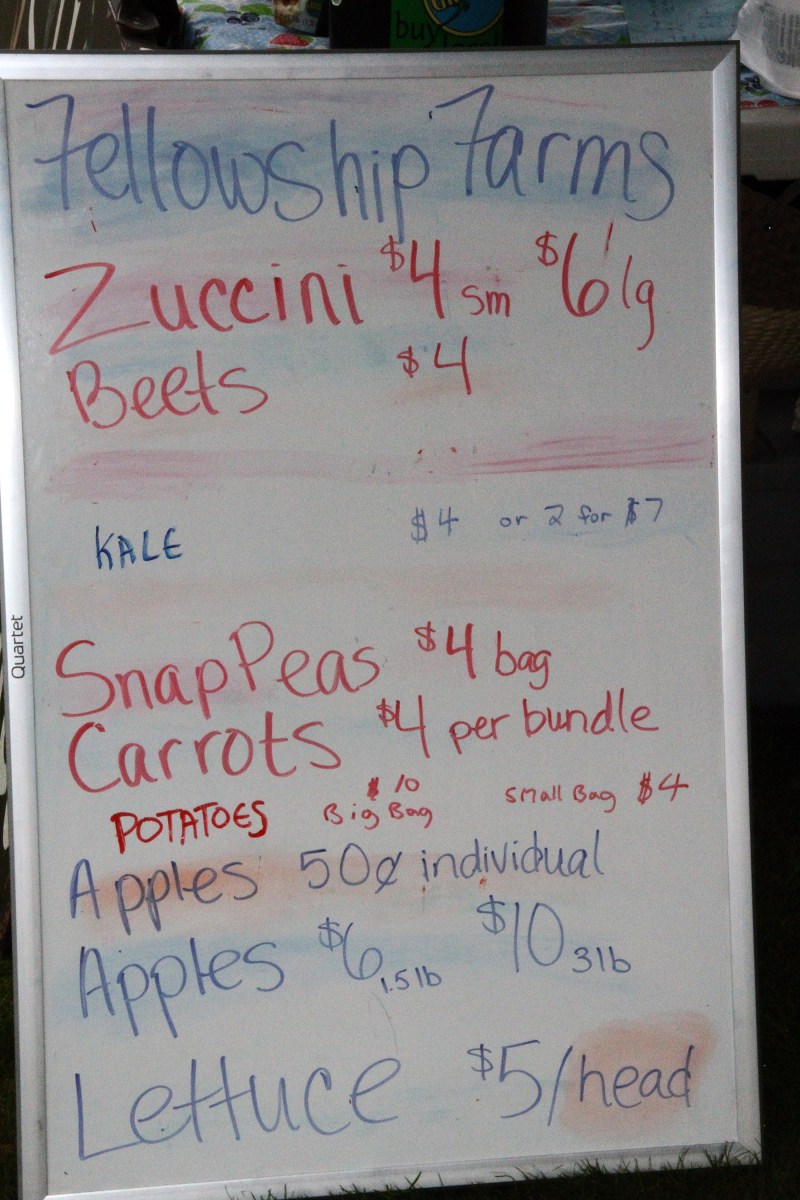 buy
Fellowship Farms
Zuccini $4 sm $6 lg
Beets $4
KALE $4 or 2 for $7
Snap Peas $4 bag
Carrots $4 per bundle
POTATOES $10 Big Bag Small Bag $4
Apples 50¢ individual
Apples $6 1.5 lb $10 3 lb
Lettuce $5/head
Quartet